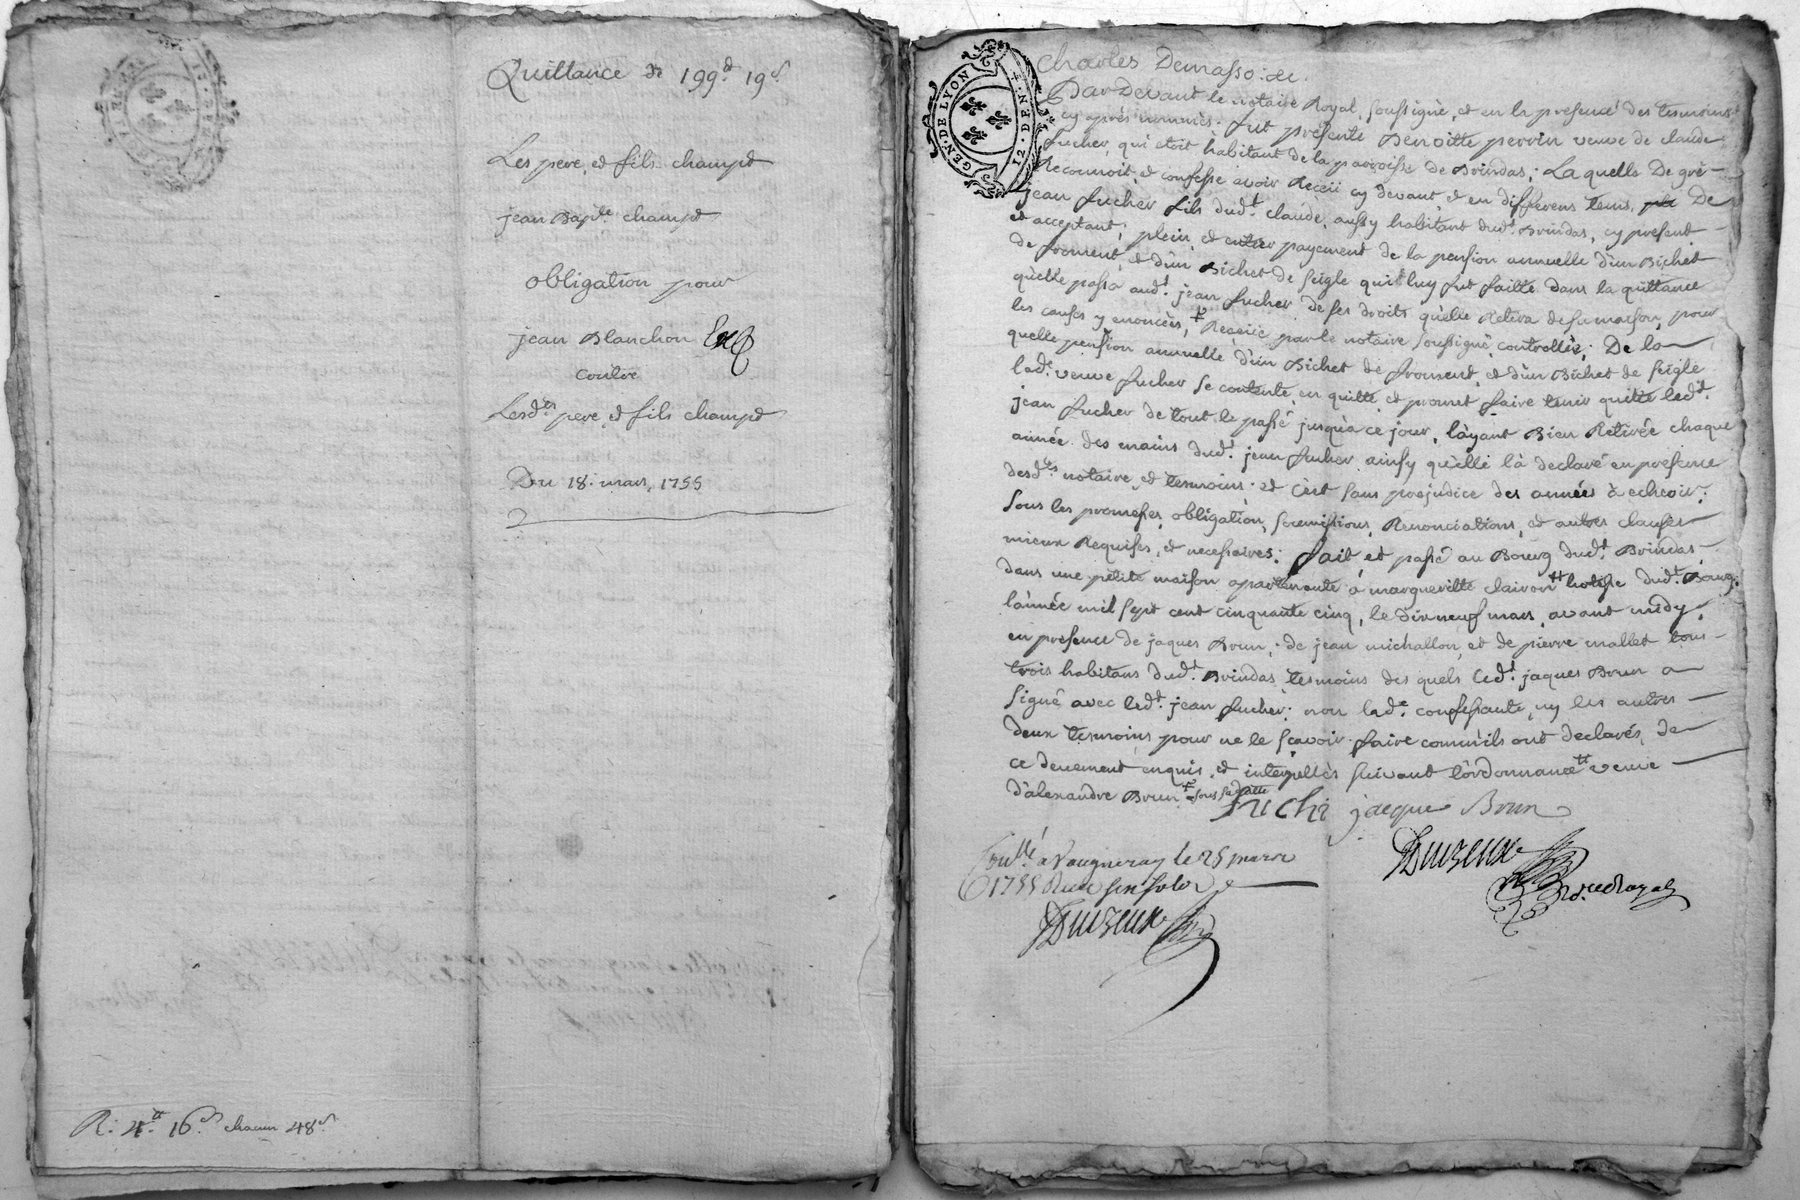 Quittance de 199# 19s
Les pere, et fils champt
jean Bapte champt
obligation pour
jean Blanchon
contre
Lesdts pere, et fils champt
Du 18. mars, 1755
R: 4# 16s chacun 48s
GEN·DE LYON
12·DEN·
Charles Demasso: de.
Pardevant le notaire Royal, soussigné, et en la presence des tesmoins
cy après nommés. fut presente Benoitte perrin veuve de claude
fucher, qui etoit habitant de la parroisse de Brindas; Laquelle De gré
Reconnoit, et confesse avoir Receü cy devant, et en differens tems, De
jean fucher fils dudt. claude, aussy habitant dudt. Brindas, cy present
et acceptant; plein, et entier payement de la pension annuelle d'un Bichet
de froment, et d'un Bichet de seigle qui luy fut faitte dans la quittance
qu'elle passa audt. jean fucher de ses droits qu'elle Retira de sa maison, pour
les causes y enoncées, + Receüe par le notaire soussigné controllée; De la
quelle pension annuelle d'un Bichet de froment, et d'un Bichet de seigle
lade. veuve fucher se contente, en quitte, et promet faire tenir quitte ledt.
jean fucher de tout le passé jusqu'a ce jour, l'ayant Bien Retirée chaque
année des mains dudt. jean fucher ainsy qu'elle l'a declaré en presence
desdts. notaire, et tesmoins. et c'est sans prejudice des années à echeoir;
sous les promesses, obligation, soumissions, Renonciations, et autres clauses
mieux Requises, et necessaires; fait, et passé au Bourg dudt. Brindas
dans une petite maison apartenante à margueritte clairon ++ hotesse dudt. Bourg.
l'année mil sept cent cinquante cinq, le dix neuf mars, avant midy,
en presence de jaques Brun, de jean michallon, et de pierre mallet tous
trois habitans dudt. Brindas, tesmoins des quels ledt. jaques Brun a
signé avec ledt. jean fucher; non lade. confessante, ny les autres
deux tesmoins pour ne le sçavoir faire comm'ils ont declarés, de
ce deuement enquis, et interpellés suivant l'ordonnance ++ veuve
d'alexandre Brun + sous sa datte
fuche jacque Brun
Conllé a Vaugneray le 25 mars
1755 Reçu six sols
Duizeux
Duizeux
nore Royal